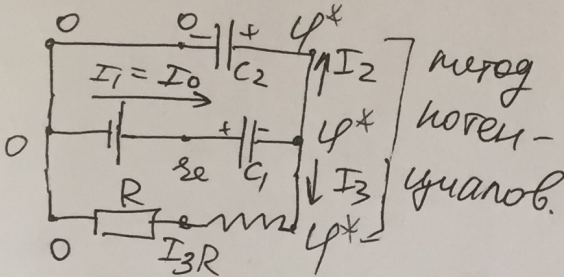 0 0 − + φ*
I₁ = I₀ C₂ I₂
0 + − φ*
ℰ C₁ I₃
R
0 I₃R φ*
метод
потен-
циалов.